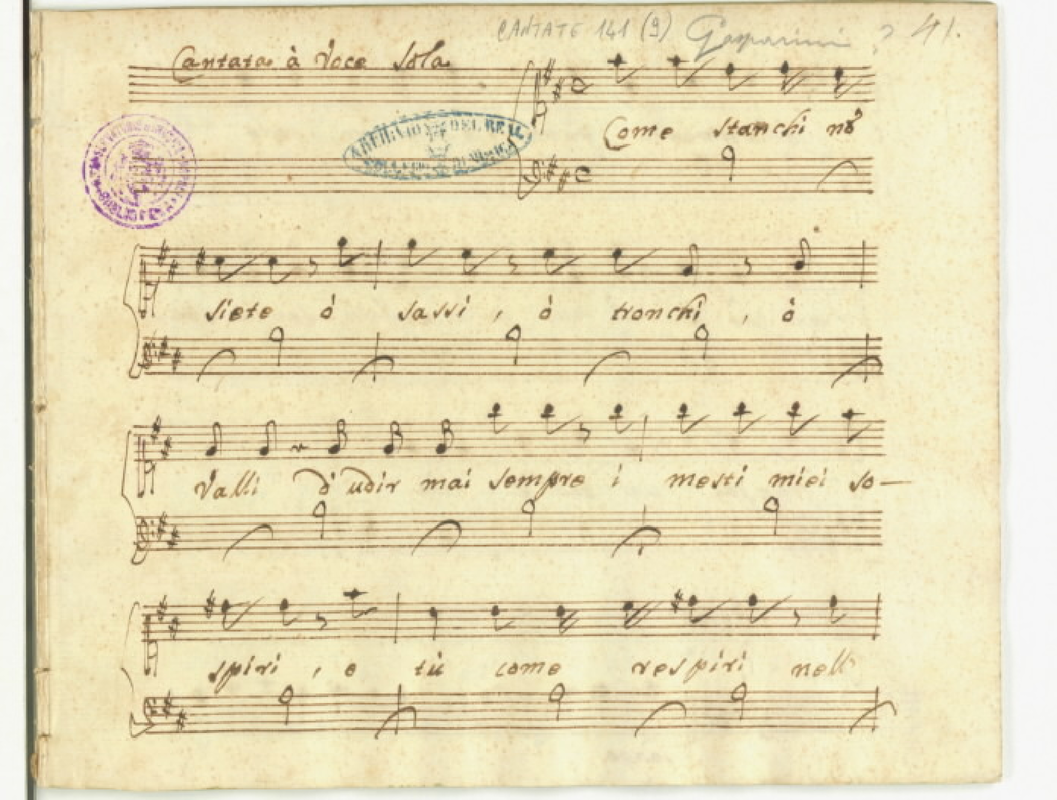 CANTATE 141 (9) Gasparini ? 41.
Cantata à Voce Sola
ARCHIVIO DEL REAL
COLLEGIO DI MUSICA
Come stanchi nõ
siete ò sassi, ò tronchi, ò
Valli d'udir mai sempre i mesti miei so-
spiri, e tù come respiri nell'